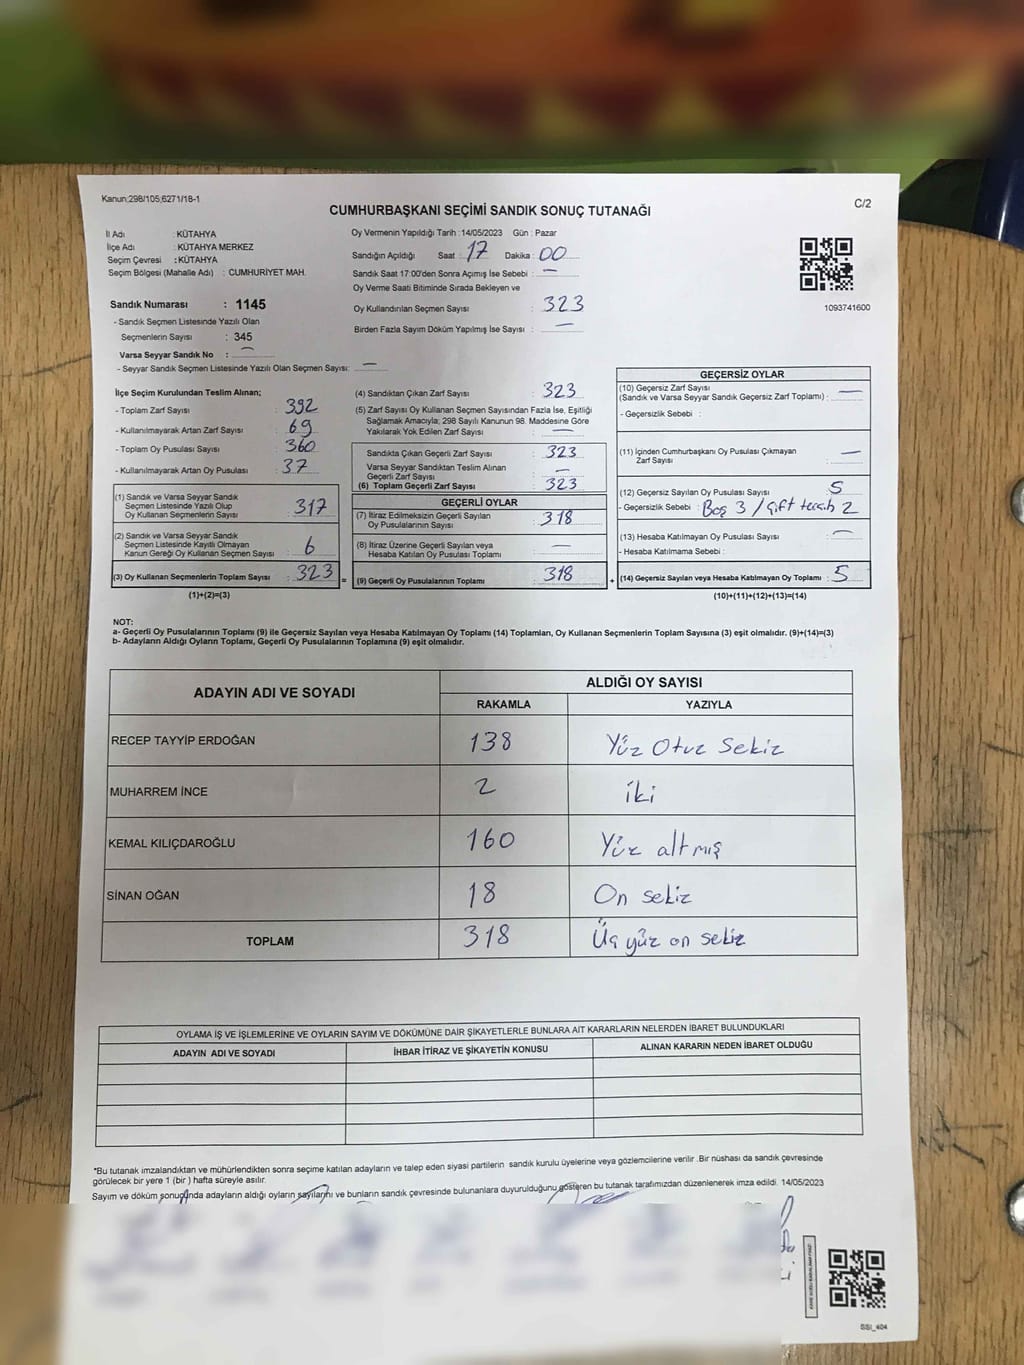 Kanun;298/105;6271/18-1
C/2
CUMHURBAŞKANI SEÇİMİ SANDIK SONUÇ TUTANAĞI
İl Adı : KÜTAHYA
İlçe Adı : KÜTAHYA MERKEZ
Seçim Çevresi : KÜTAHYA
Seçim Bölgesi (Mahalle Adı) : CUMHURİYET MAH.
Sandık Numarası : 1145
- Sandık Seçmen Listesinde Yazılı Olan
Seçmenlerin Sayısı : 345
Varsa Seyyar Sandık No : —
- Seyyar Sandık Seçmen Listesinde Yazılı Olan Seçmen Sayısı: —
Oy Vermenin Yapıldığı Tarih :14/05/2023 Gün : Pazar
Sandığın Açıldığı Saat : 17 Dakika : 00
Sandık Saat 17:00'den Sonra Açımış İse Sebebi : —
Oy Verme Saati Bitiminde Sırada Bekleyen ve
Oy Kullandırılan Seçmen Sayısı : 323
Birden Fazla Sayım Döküm Yapılmış İse Sayısı : —
1093741600
İlçe Seçim Kurulundan Teslim Alınan;
- Toplam Zarf Sayısı : 392
- Kullanılmayarak Artan Zarf Sayısı : 69
- Toplam Oy Pusulası Sayısı : 360
- Kullanılmayarak Artan Oy Pusulası : 37
(1) Sandık ve Varsa Seyyar Sandık
Seçmen Listesinde Yazılı Olup
Oy Kullanan Seçmenlerin Sayısı : 317
(2) Sandık ve Varsa Seyyar Sandık
Seçmen Listesinde Kayıtlı Olmayan
Kanun Gereği Oy Kullanan Seçmen Sayısı : 6
(3) Oy Kullanan Seçmenlerin Toplam Sayısı : 323
(1)+(2)=(3)
(4) Sandıktan Çıkan Zarf Sayısı : 323
(5) Zarf Sayısı Oy Kullanan Seçmen Sayısından Fazla İse, Eşitliği
Sağlamak Amacıyla; 298 Sayılı Kanunun 98. Maddesine Göre
Yakılarak Yok Edilen Zarf Sayısı : —
Sandıkta Çıkan Geçerli Zarf Sayısı : 323
Varsa Seyyar Sandıktan Teslim Alınan
Geçerli Zarf Sayısı : —
(6) Toplam Geçerli Zarf Sayısı : 323
GEÇERLİ OYLAR
(7) İtiraz Edilmeksizin Geçerli Sayılan
Oy Pusulalarının Sayısı : 318
(8) İtiraz Üzerine Geçerli Sayılan veya
Hesaba Katılan Oy Pusulası Toplamı : —
= (9) Geçerli Oy Pusulalarının Toplamı : 318 +
GEÇERSİZ OYLAR
(10) Geçersiz Zarf Sayısı
(Sandık ve Varsa Seyyar Sandık Geçersiz Zarf Toplamı) : —
- Geçersizlik Sebebi :
(11) İçinden Cumhurbaşkanı Oy Pusulası Çıkmayan
Zarf Sayısı : —
(12) Geçersiz Sayılan Oy Pusulası Sayısı : 5
- Geçersizlik Sebebi : Boş 3 / Çift tercih 2
(13) Hesaba Katılmayan Oy Pusulası Sayısı : —
- Hesaba Katılmama Sebebi :
(14) Geçersiz Sayılan veya Hesaba Katılmayan Oy Toplamı : 5
(10)+(11)+(12)+(13)=(14)
NOT:
a- Geçerli Oy Pusulalarının Toplamı (9) ile Geçersiz Sayılan veya Hesaba Katılmayan Oy Toplamı (14) Toplamları, Oy Kullanan Seçmenlerin Toplam Sayısına (3) eşit olmalıdır. (9)+(14)=(3)
b- Adayların Aldığı Oyların Toplamı, Geçerli Oy Pusulalarının Toplamına (9) eşit olmalıdır.
ADAYIN ADI VE SOYADI ALDIĞI OY SAYISI
RAKAMLA YAZIYLA
RECEP TAYYİP ERDOĞAN 138 Yüz Otuz Sekiz
MUHARREM İNCE 2 iki
KEMAL KILIÇDAROĞLU 160 Yüz altmış
SİNAN OĞAN 18 On sekiz
TOPLAM 318 Üç yüz on sekiz
OYLAMA İŞ VE İŞLEMLERİNE VE OYLARIN SAYIM VE DÖKÜMÜNE DAİR ŞİKAYETLERLE BUNLARA AİT KARARLARIN NELERDEN İBARET BULUNDUKLARI
ADAYIN ADI VE SOYADI İHBAR İTİRAZ VE ŞİKAYETİN KONUSU ALINAN KARARIN NEDEN İBARET OLDUĞU
*Bu tutanak imzalandıktan ve mühürlendikten sonra seçime katılan adayların ve talep eden siyasi partilerin sandık kurulu üyelerine veya gözlemcilerine verilir .Bir nüshası da sandık çevresinde
görülecek bir yere 1 (bir ) hafta süreyle asılır.
Sayım ve döküm sonucunda adayların aldığı oyların sayılarını ve bunların sandık çevresinde bulunanlara duyurulduğunu gösteren bu tutanak tarafımızdan düzenlenerek imza edildi. 14/05/2023
SSİ_404